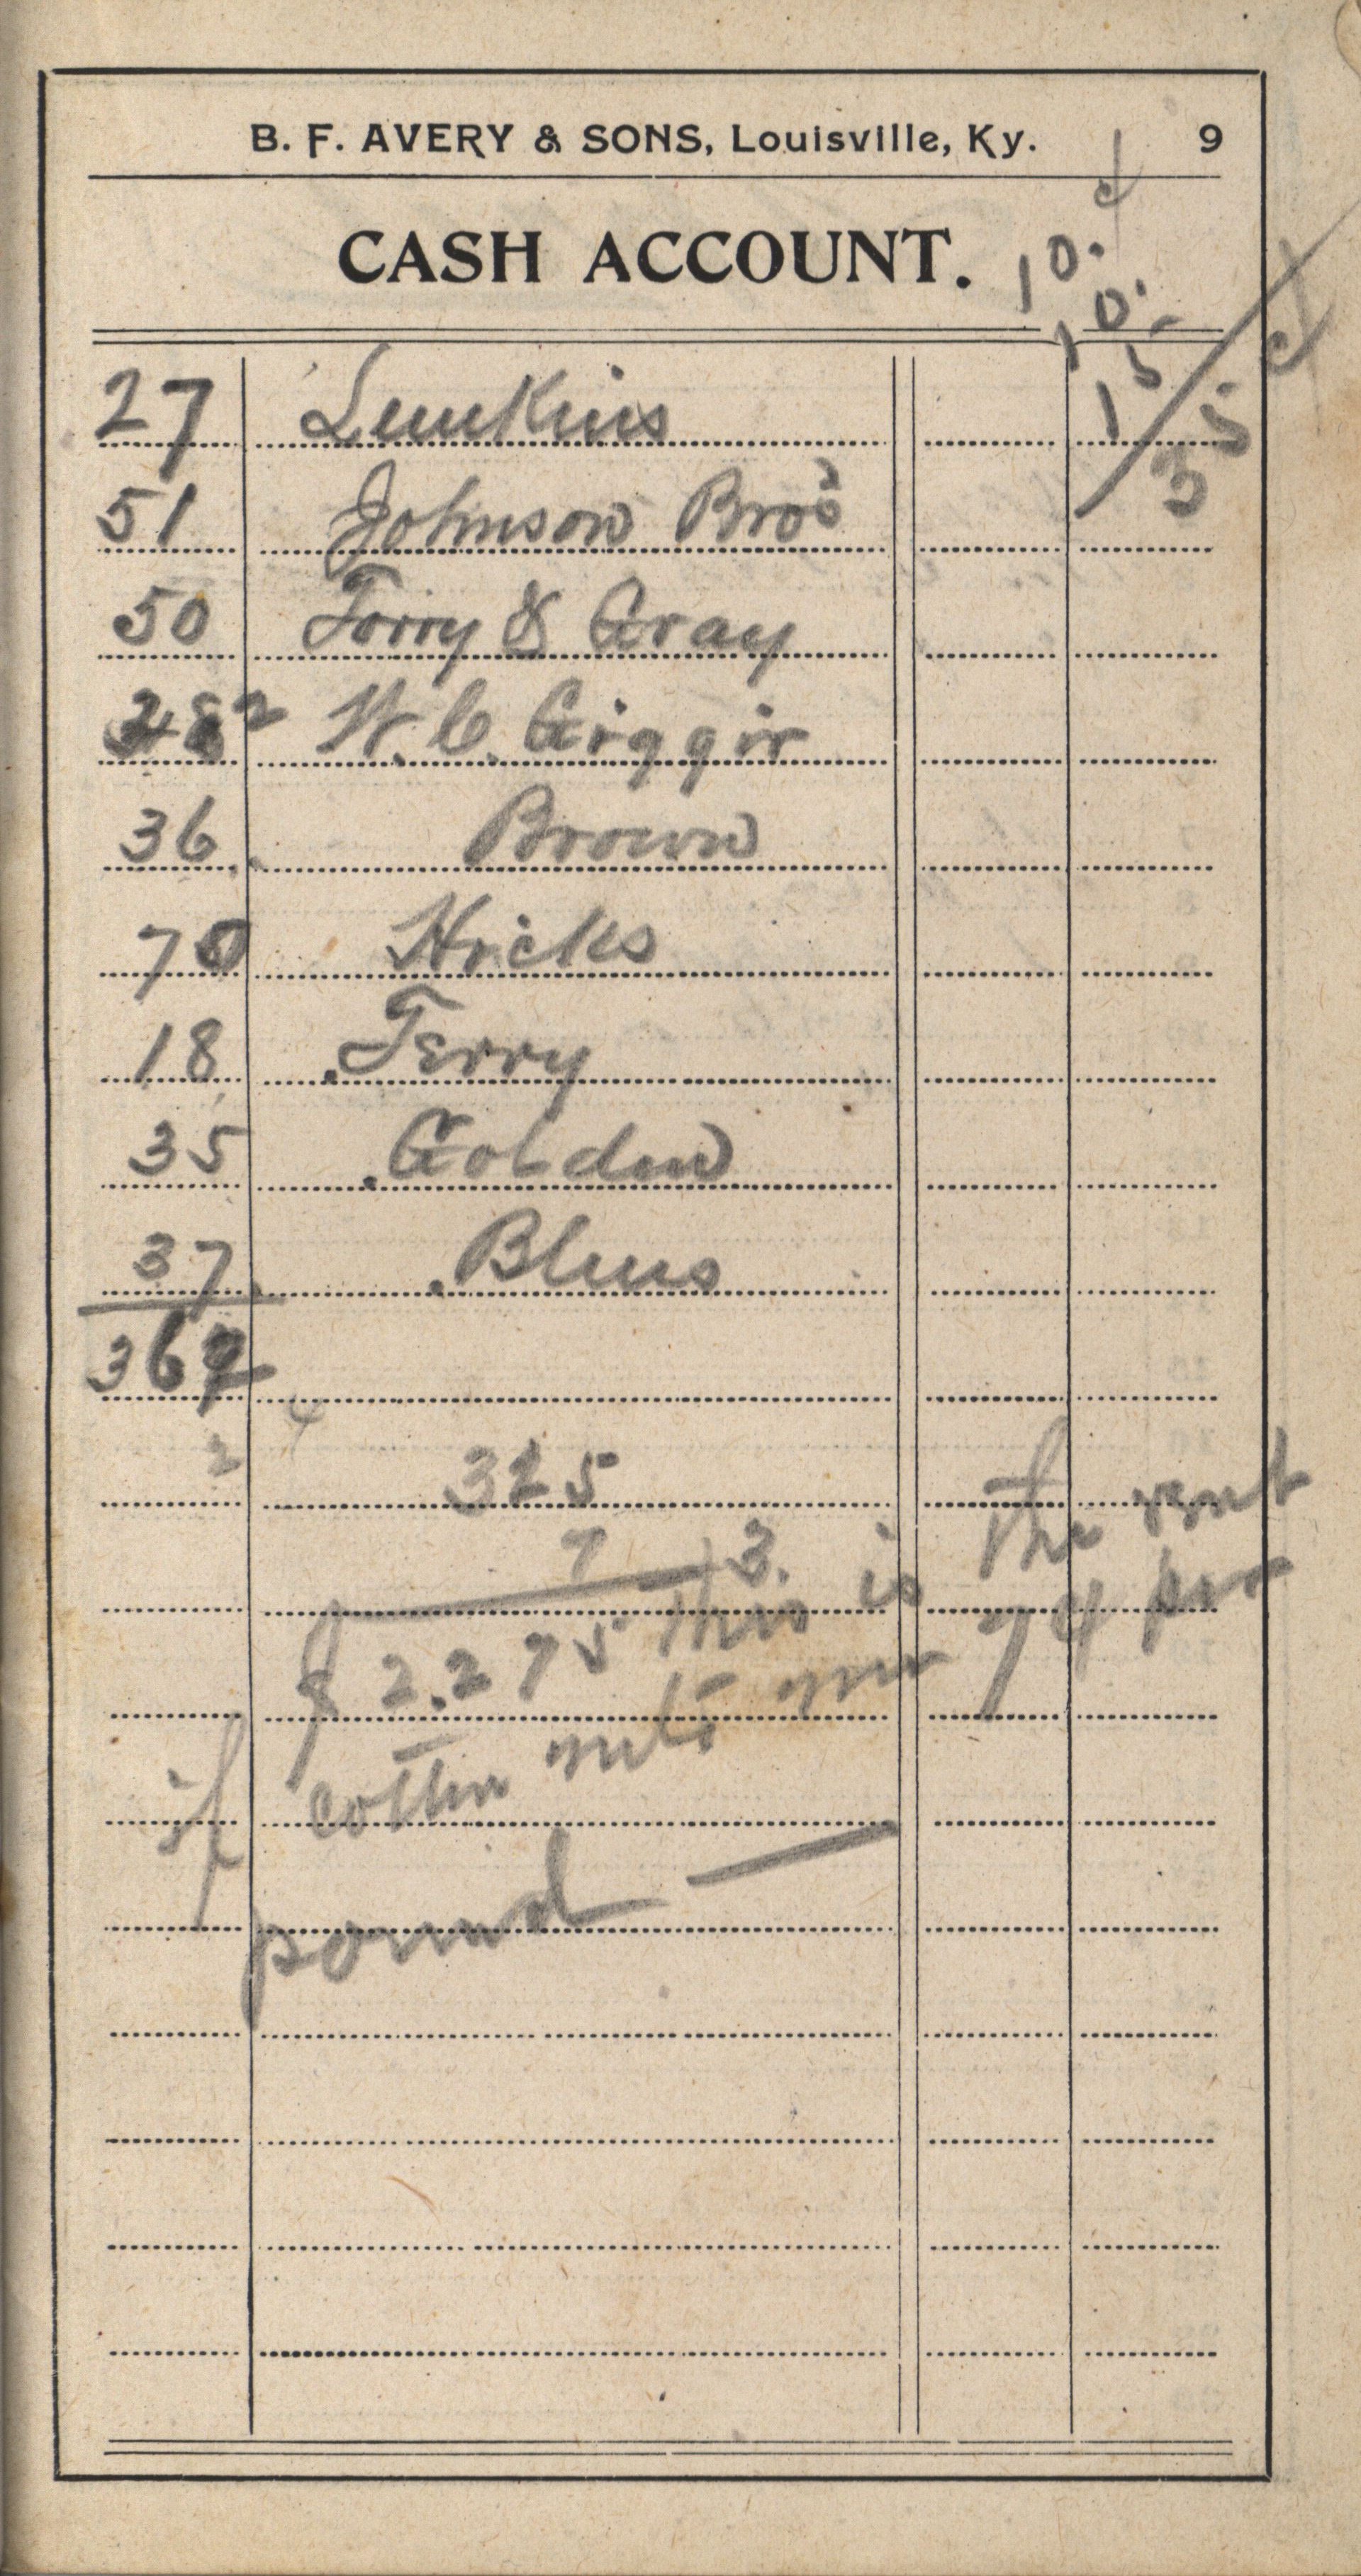 B. F. AVERY & SONS, Louisville, Ky. 9
CASH ACCOUNT.
10.
10.
15
27 Lunkins
51 Johnson Bro's
50 Torry & Gray
38 W. C. Griggir
36 Brown
70 Hicks
18 Terry
35 Golden
37 Blins
362
325
7
3.
$ 2.275 this is the rent
if cotton nets me 7¢ per
pound —